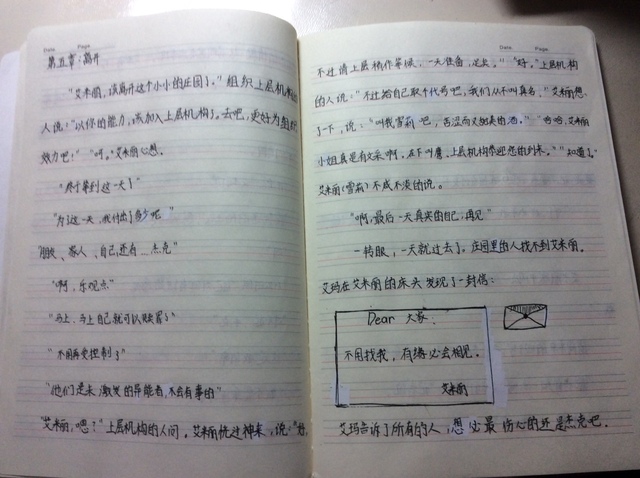 Date. Page.
第五章:离开
"艾米丽,该离开这个小小的庄园了。"组织上层机构的
人说:"以你的能力,该加入上层机构了。去吧,更好为组织
效力吧!""呵。"艾米丽心想。
"终于等到这一天了"
"为了这一天,我付出了多少呢"
"朋友、家人、自己,还有…杰克"
"啊,乐观点"
"马上,马上自己就可以赎罪了"
"不用再受控制了"
"他们是未激发的异能者,不会有事的"
"艾米丽,嗯?"上层机构的人问。艾米丽恍过神来,说:"好,
Date. Page.
不过请上层稍作等候,一天准备,足矣。""好。"上层机构
的人说:"不过给自己取个代号吧,我们从不叫真名。"艾米丽想
了下,说:"叫我雪莉吧,苦涩而又甜美的酒。""哈哈,艾米丽
小姐真是有文采啊。在下叫鹰,上层机构恭迎您的到来。""知道了。"
艾米丽(雪莉)不咸不淡的说。
"啊,最后一天真实的自己,再见"
一转眼,一天就过去了。庄园里的人找不到艾米丽。
艾玛在艾米丽的床头发现了一封信:
Dear 大家.
不用找我,有缘必会相见。
艾米丽
艾玛告诉了所有的人,想必最伤心的还是杰克吧。